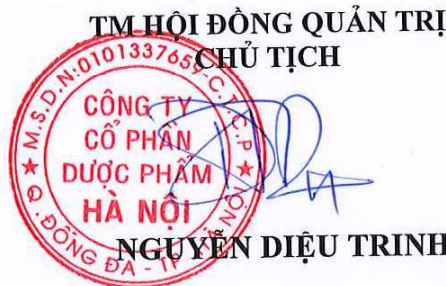 TM HỘI ĐỒNG QUẢN TRỊ
CHỦ TỊCH
M.S.D.N:0101337659-C.T.C.P
CÔNG TY
CỔ PHẦN
DƯỢC PHẨM
HÀ NỘI
Q.ĐỐNG ĐA - TP HÀ NỘI
NGUYỄN DIỆU TRINH